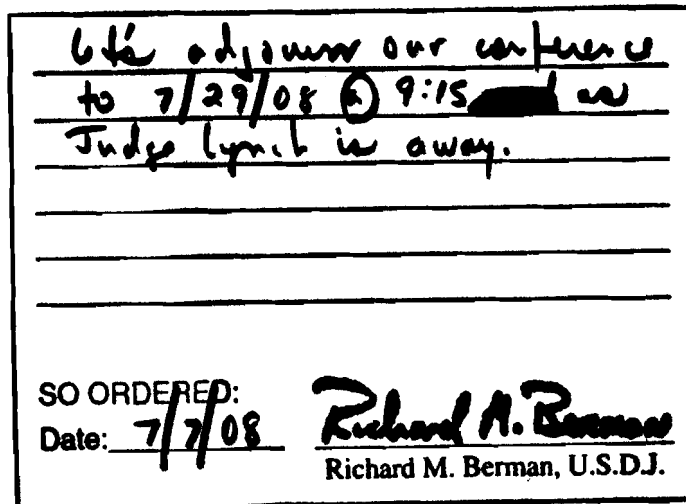 Let's adjourn our conference
to 7/29/08 @ 9:15 as
Judge Lynch is away.
SO ORDERED:
Date: 7/7/08
Richard M. Berman
Richard M. Berman, U.S.D.J.